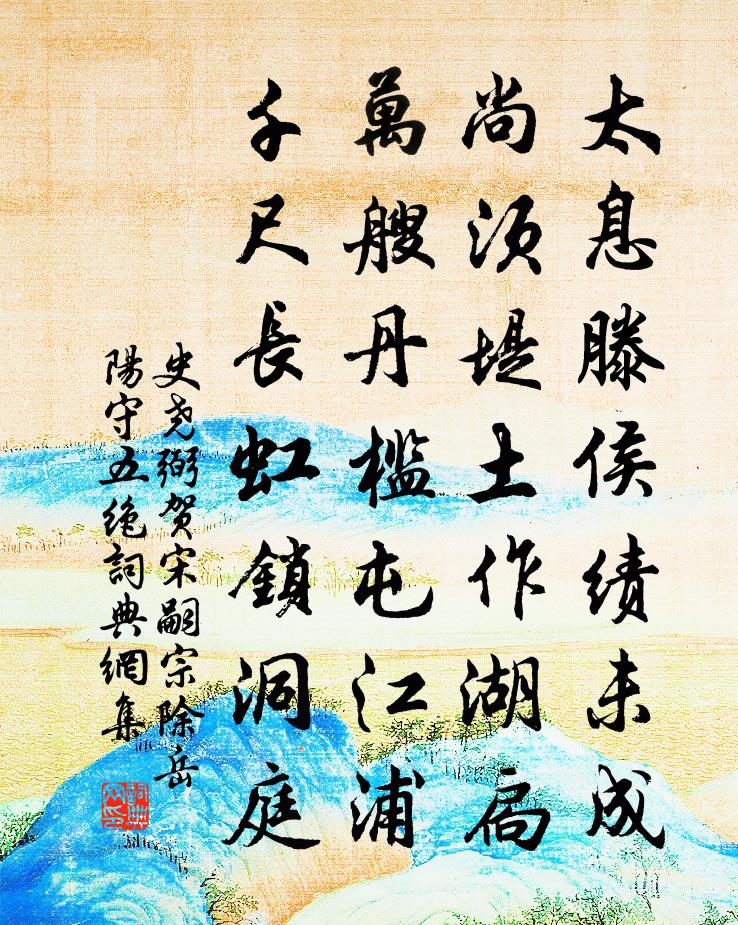 太息滕侯績未成
尚須堤土作湖扃
萬艘丹檻屯江浦
千尺長虹鎖洞庭
史堯弼賀宋嗣宗除岳
陽守五絕詞典網集